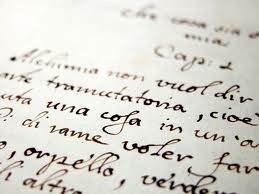 che cosa sia
mia
Cap: 1
Alchimia non vuol dir
arte tramutatoria, cioè
uta una cosa in un'a
di rame voler far
e, orpello, verder
di altra